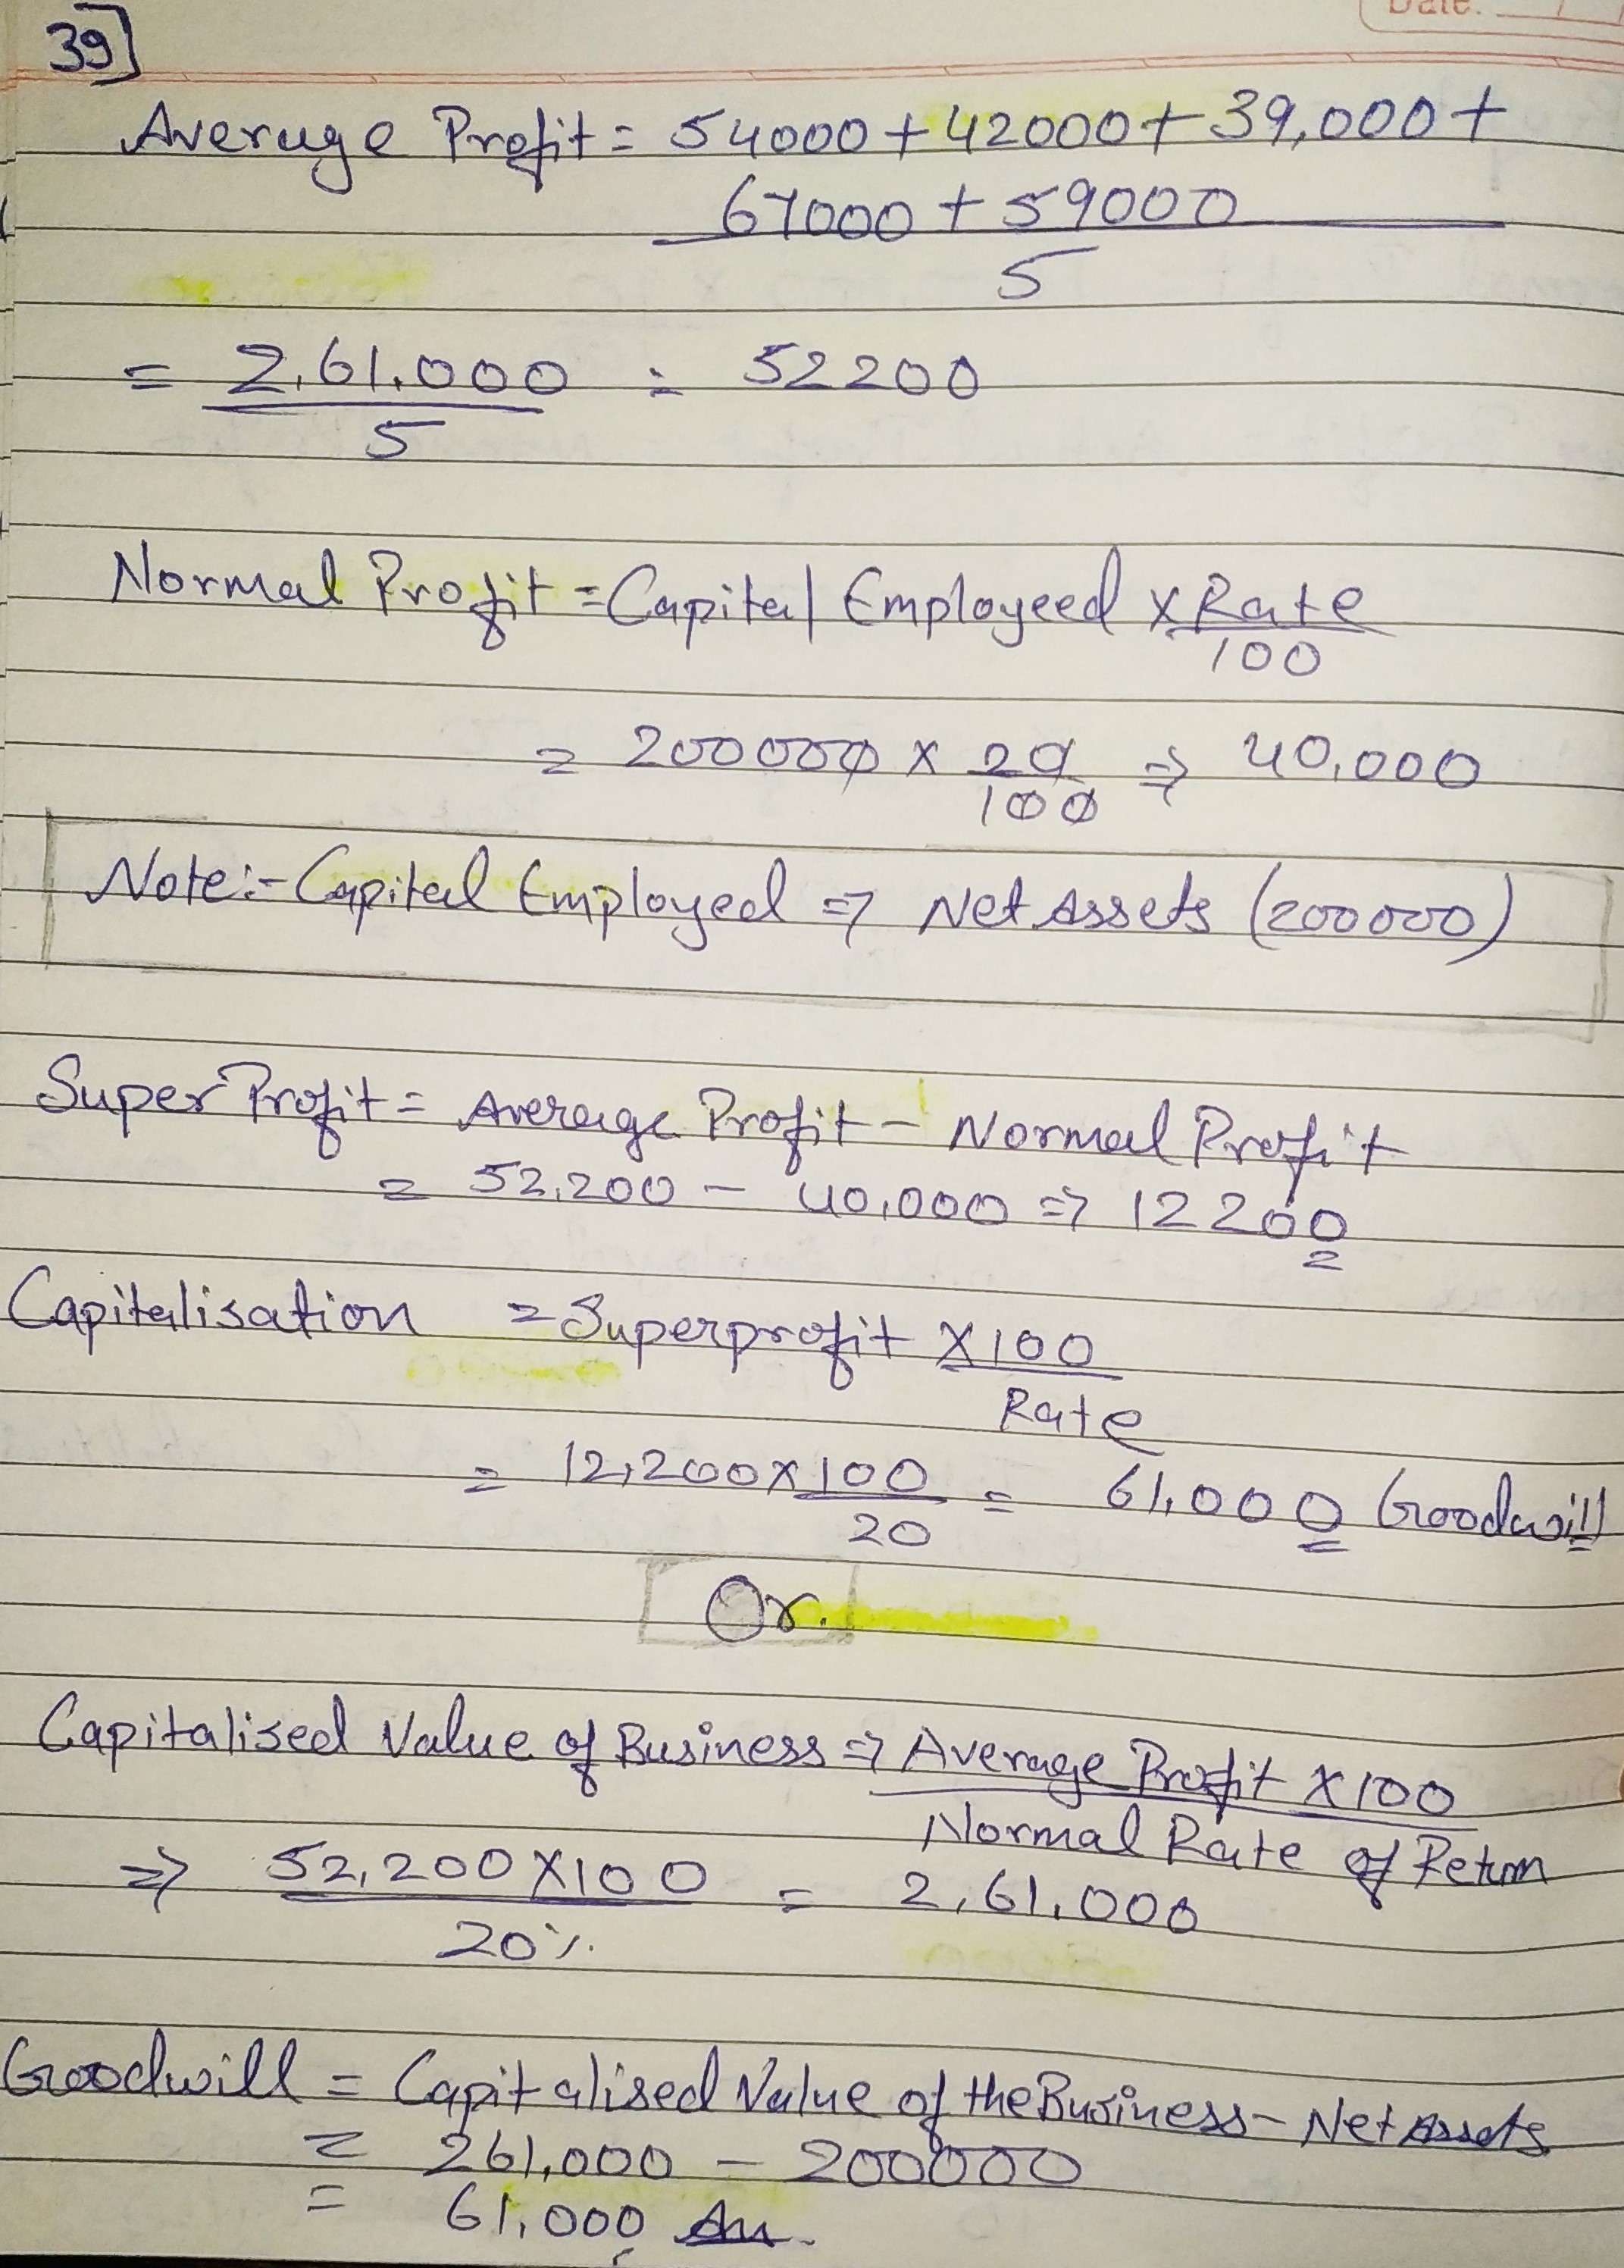 Date.
39]
Average Profit = 54000 + 42000 + 39,000 +
67000 + 59000
5
= 2,61,000 = 52200
5
Normal Profit = Capital Employeed x Rate
100
= 200000 x 20 ⇒ 40,000
100
Note:- Capital Employed ⇒ Net Assets (200000)
Super Profit = Average Profit - Normal Profit
= 52,200 - 40,000 ⇒ 12200
Capitalisation = Superprofit X 100
Rate
= 12,200 x 100 = 61,000 Goodwill
20
Or.
Capitalised Value of Business ⇒ Average Profit x 100
Normal Rate of Return
⇒ 52,200 X 100 = 2,61,000
20%
Goodwill = Capitalised Value of the Business - Net Assets
= 261,000 - 200000
= 61,000 An